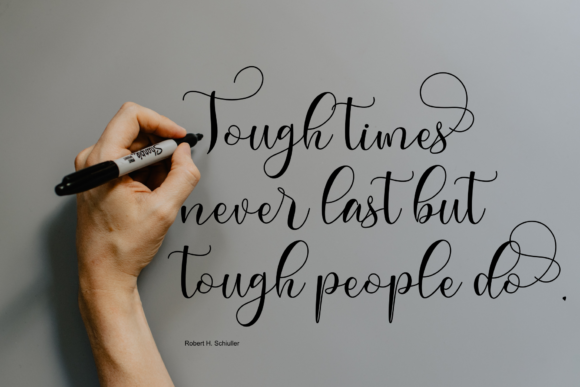 Tough times
never last but
tough people do
Sharpie
Robert H. Schiuller